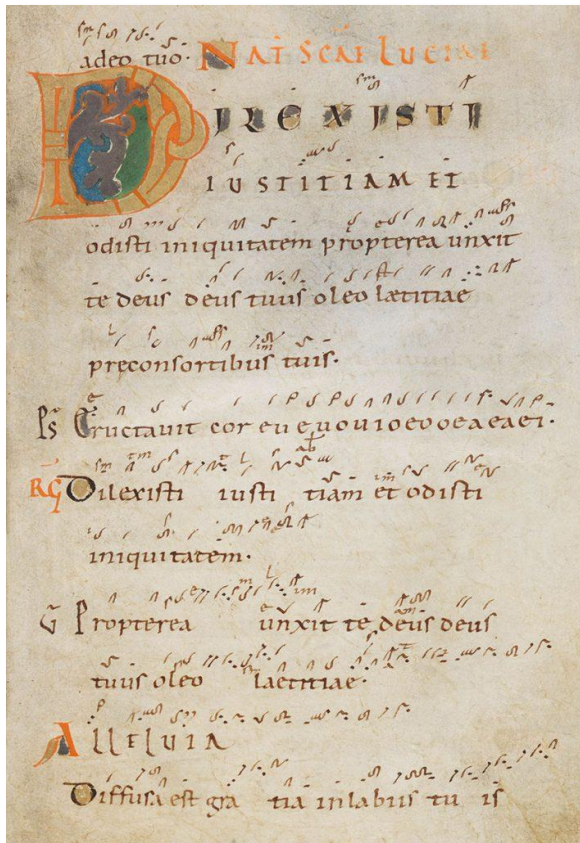 adeo tuo. NAT SCAE LUCIAE
DILEXISTI
IUSTITIAM ET
odisti iniquitatem propterea unxit
te deus deus tuus oleo lætitiae
preconsortibus tuis.
Ps Eructauit cor eu e u o u i o e o o e a e a e i.
RG Dilexisti iusti tiam et odisti
iniquitatem.
V Propterea unxit te deus deus
tuus oleo laetitiae.
ALLELUIA
Diffusa est gra tia inlabiis tu is